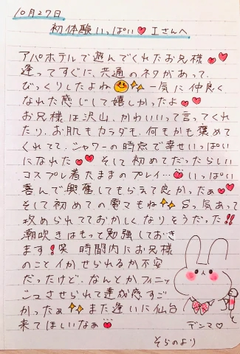 10月27日
初体験いっぱい♥Iさんへ
アパホテルで遊んでくれたお兄様♥
逢ってすぐに、共通のネタがあって、
びっくりしたよね😊✨一気に仲良く
なれた感じして嬉しかったよ♥♥
お兄様は沢山、かわいいって言ってくれ
たり、お肌もカラダも、何もかも褒めて
くれてて、シャワーの時点で幸せいっぱい
になれた♥そして初めてだったらしい
コスプレ着たままのプレイ…♥いっぱい
喜んで興奮してもらえて良かったぁ♥
そして初めての電マもね✨S っ気あって
攻められてておかしくなりそうだった!!
潮吹きはもっと勉強しておき
ます!笑 時間内にお兄様
のことイかせられるか不安
だったけど、なんとかフィニッ
シュさせられて達成感すご
かったぁ✨また逢いに仙台
来てほしいなぁ…♥
デンマ♡
そらのより